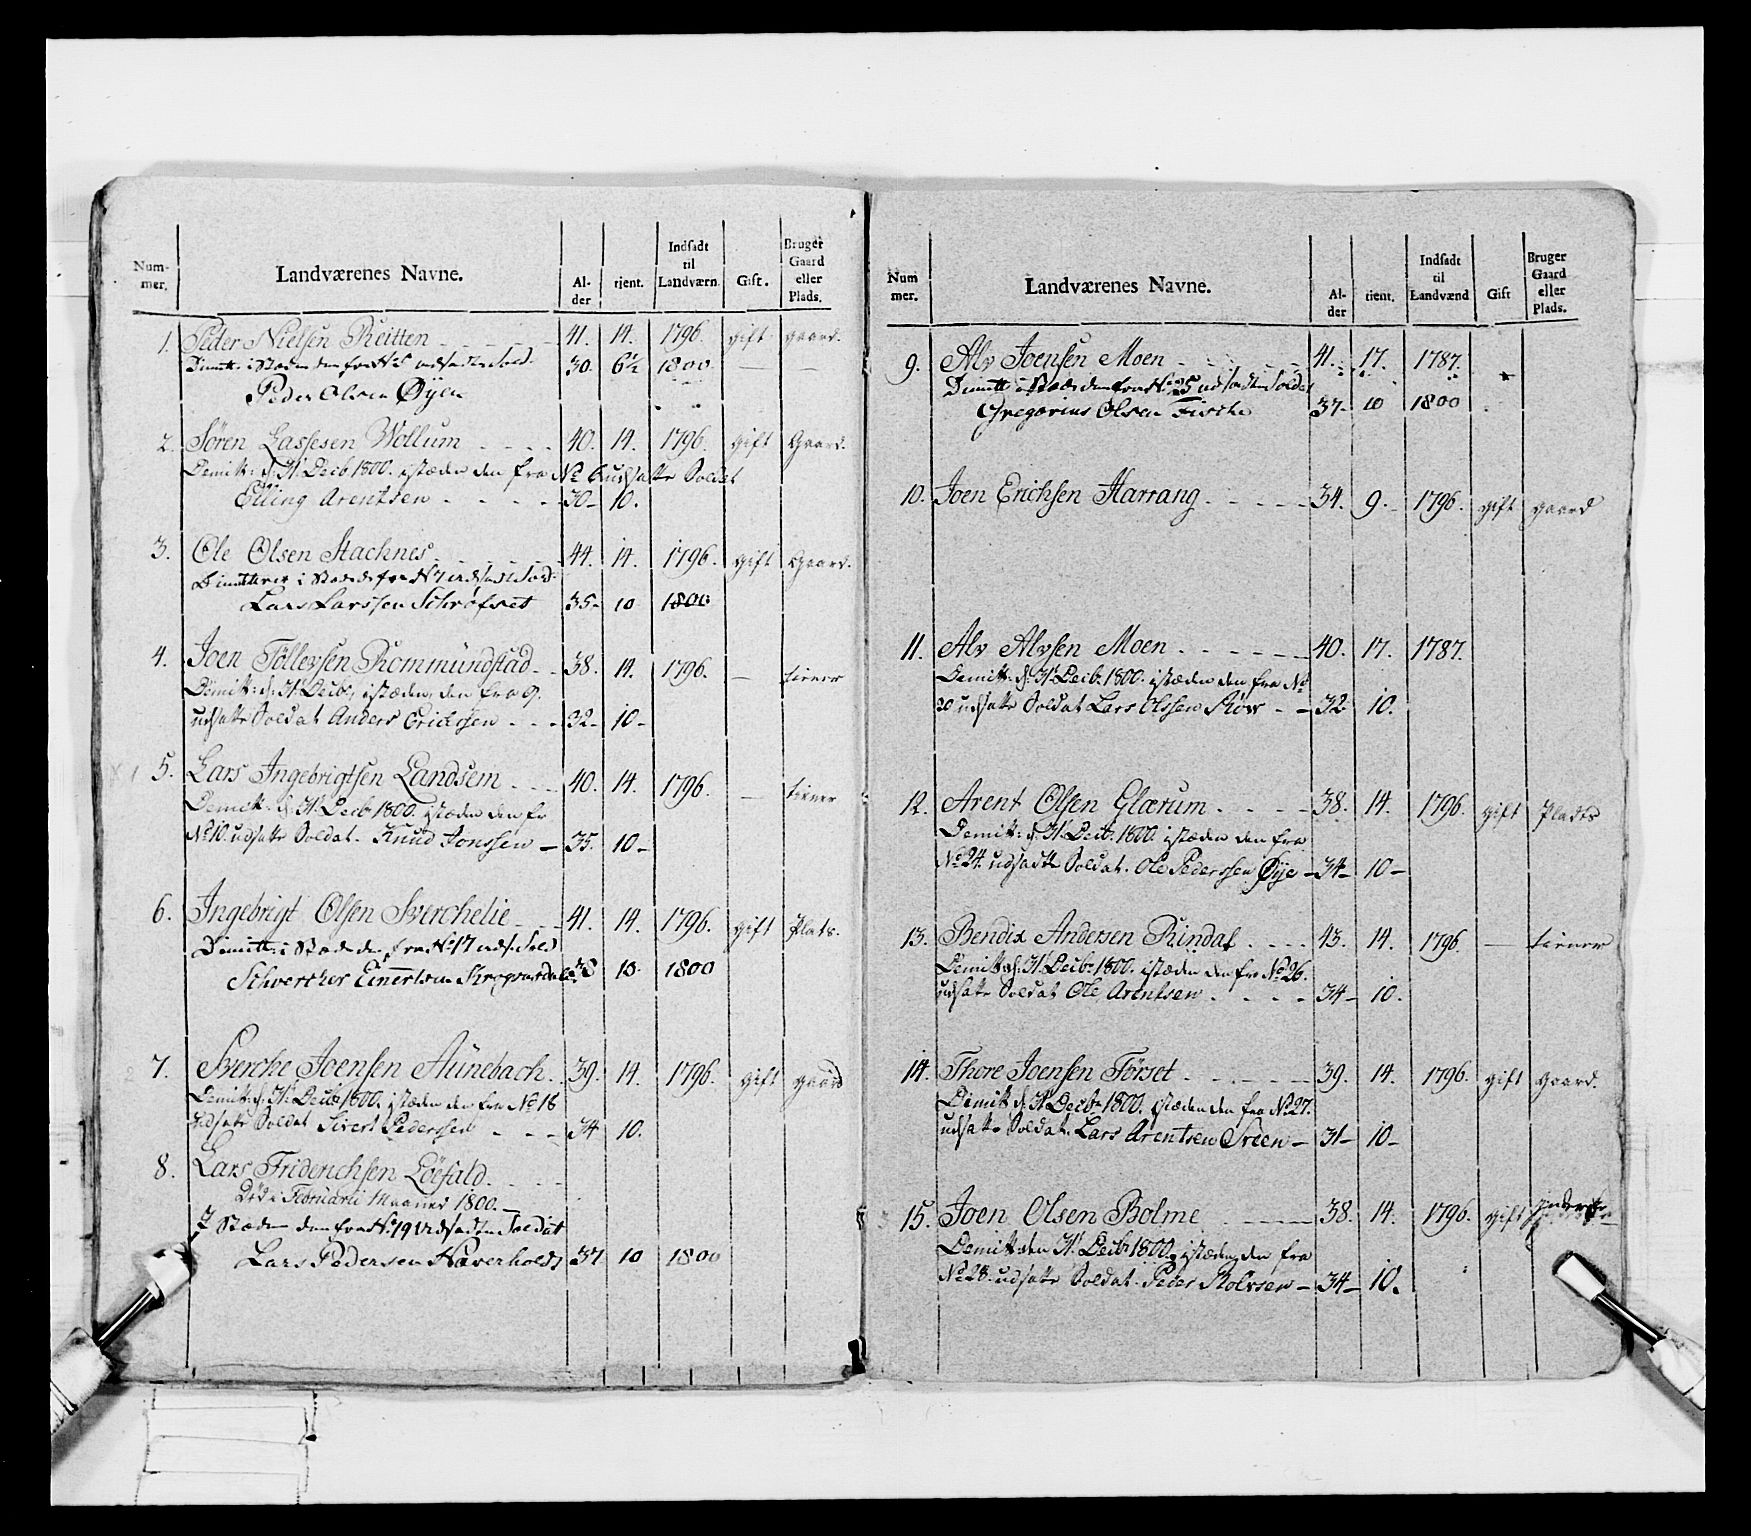 Num-
mer.
Landværenes Navne.
Al-
der
tjent.
Indsadt
til
Landværn
Gift.
Bruger
Gaard
eller
Plads.
1. Peder Nielsen Reitten 41. 14. 1796. gift gaard.
Dimitt: i Stæden den fra No 5 udsadte Sold. 30. 6½ 1800 — —
Peder Olsen Øyen
2. Søren Lassesen Wollum 40. 14. 1796. gift Gaard.
Demitt: d: 31t Decb 1800. istæden den fra No 6 udsatte Soldat
Elling Arentsen 30- 10.
3. Ole Olsen Hachnes 44. 14. 1796. gift Gaard.
Dimitterer i Stæden fra No 7 udsadte Sold:
Lars Larssen Schrøfset 35- 10 1800
4. Joen Tøllevsen Rommundstad 38. 14. 1796. — tiener
Demitt: d: 31t Decbr, istæden, den fra 9.
udsatte Soldat Anders Erickssen 32- 10-
5. Lars Ingebrigtsen Landsem 40. 14. 1796. — tiener
Demitt. d. 31t Decb 1800. istæden den fr
No 10. udsatte Soldat. Knud Jonssen 35. 10-
6. Ingebrigt Olsen Sverchelie 41. 14. 1796. gift Plats.
Dimitt: i Stæden den fra No 17 uds: Sold
Schverther Einertsen 10. 1800
7. Sverche Joensen Aunebach 39. 14. 1796. gift gaard
Demitt: d. 31t Decbr 1800. istæden den fra No 18
udsatte Soldat Sivert Pedersen 34 10.
8. Lars Friderichsen Løefald.
Død i Februarii Maaned 1800.
I Stæden den fra No 19 Udsadte Soldat
Lars Pedersen Haverholdt 37 10 1800
Num
mer.
Landværenes Navne.
Al-
der
tient.
Indsadt
til
Landværnd
Gift
Bruger
Gaard
eller
Plads.
9. Alv Joensen Moen 41. 17. 1787.
Dimitt i Stæden den fra No 25 udsadte Soldat
Gregorius Olsen Fiske 37- 10 1800
10. Joen Erichsen Harrang 34. 9. 1796. gift gaard
11. Alv Alvsen Moen 40. 17. 1787.
Demitt. d: 31t Decbr 1800. istæden den fra No
20 udsatte Soldat Lars Olssen Røv 32 10.
12. Arent Olsen Glærum 38. 14. 1796. gift Plads
Demitt: d: 31t Decbr 1800. istæden den fra
No 24. udsadte Soldat. Ole Pederssen Øye 34- 10-
13. Bendix Andersen Rindal 43. 14. 1796 — tiener
Demitt d: 31t Decbr 1800. istæden den fra No 26.
udsatte Soldat Ole Arentsen 34- 10.
14. Thore Joensen Førset 39. 14. 1796. gift gaard.
Dimitt d. 31t Decbr 1800. istæden den fra No 27.
udsatte Soldat. Lars Arentsen Sreen 31- 10-
15. Joen Olsen Bolme 38. 14. 1796. gift
Demitt den 31t Decbr 1800, istæden, den fra
No 28. udsatte Soldat. Peder Rolvsen 34- 10.